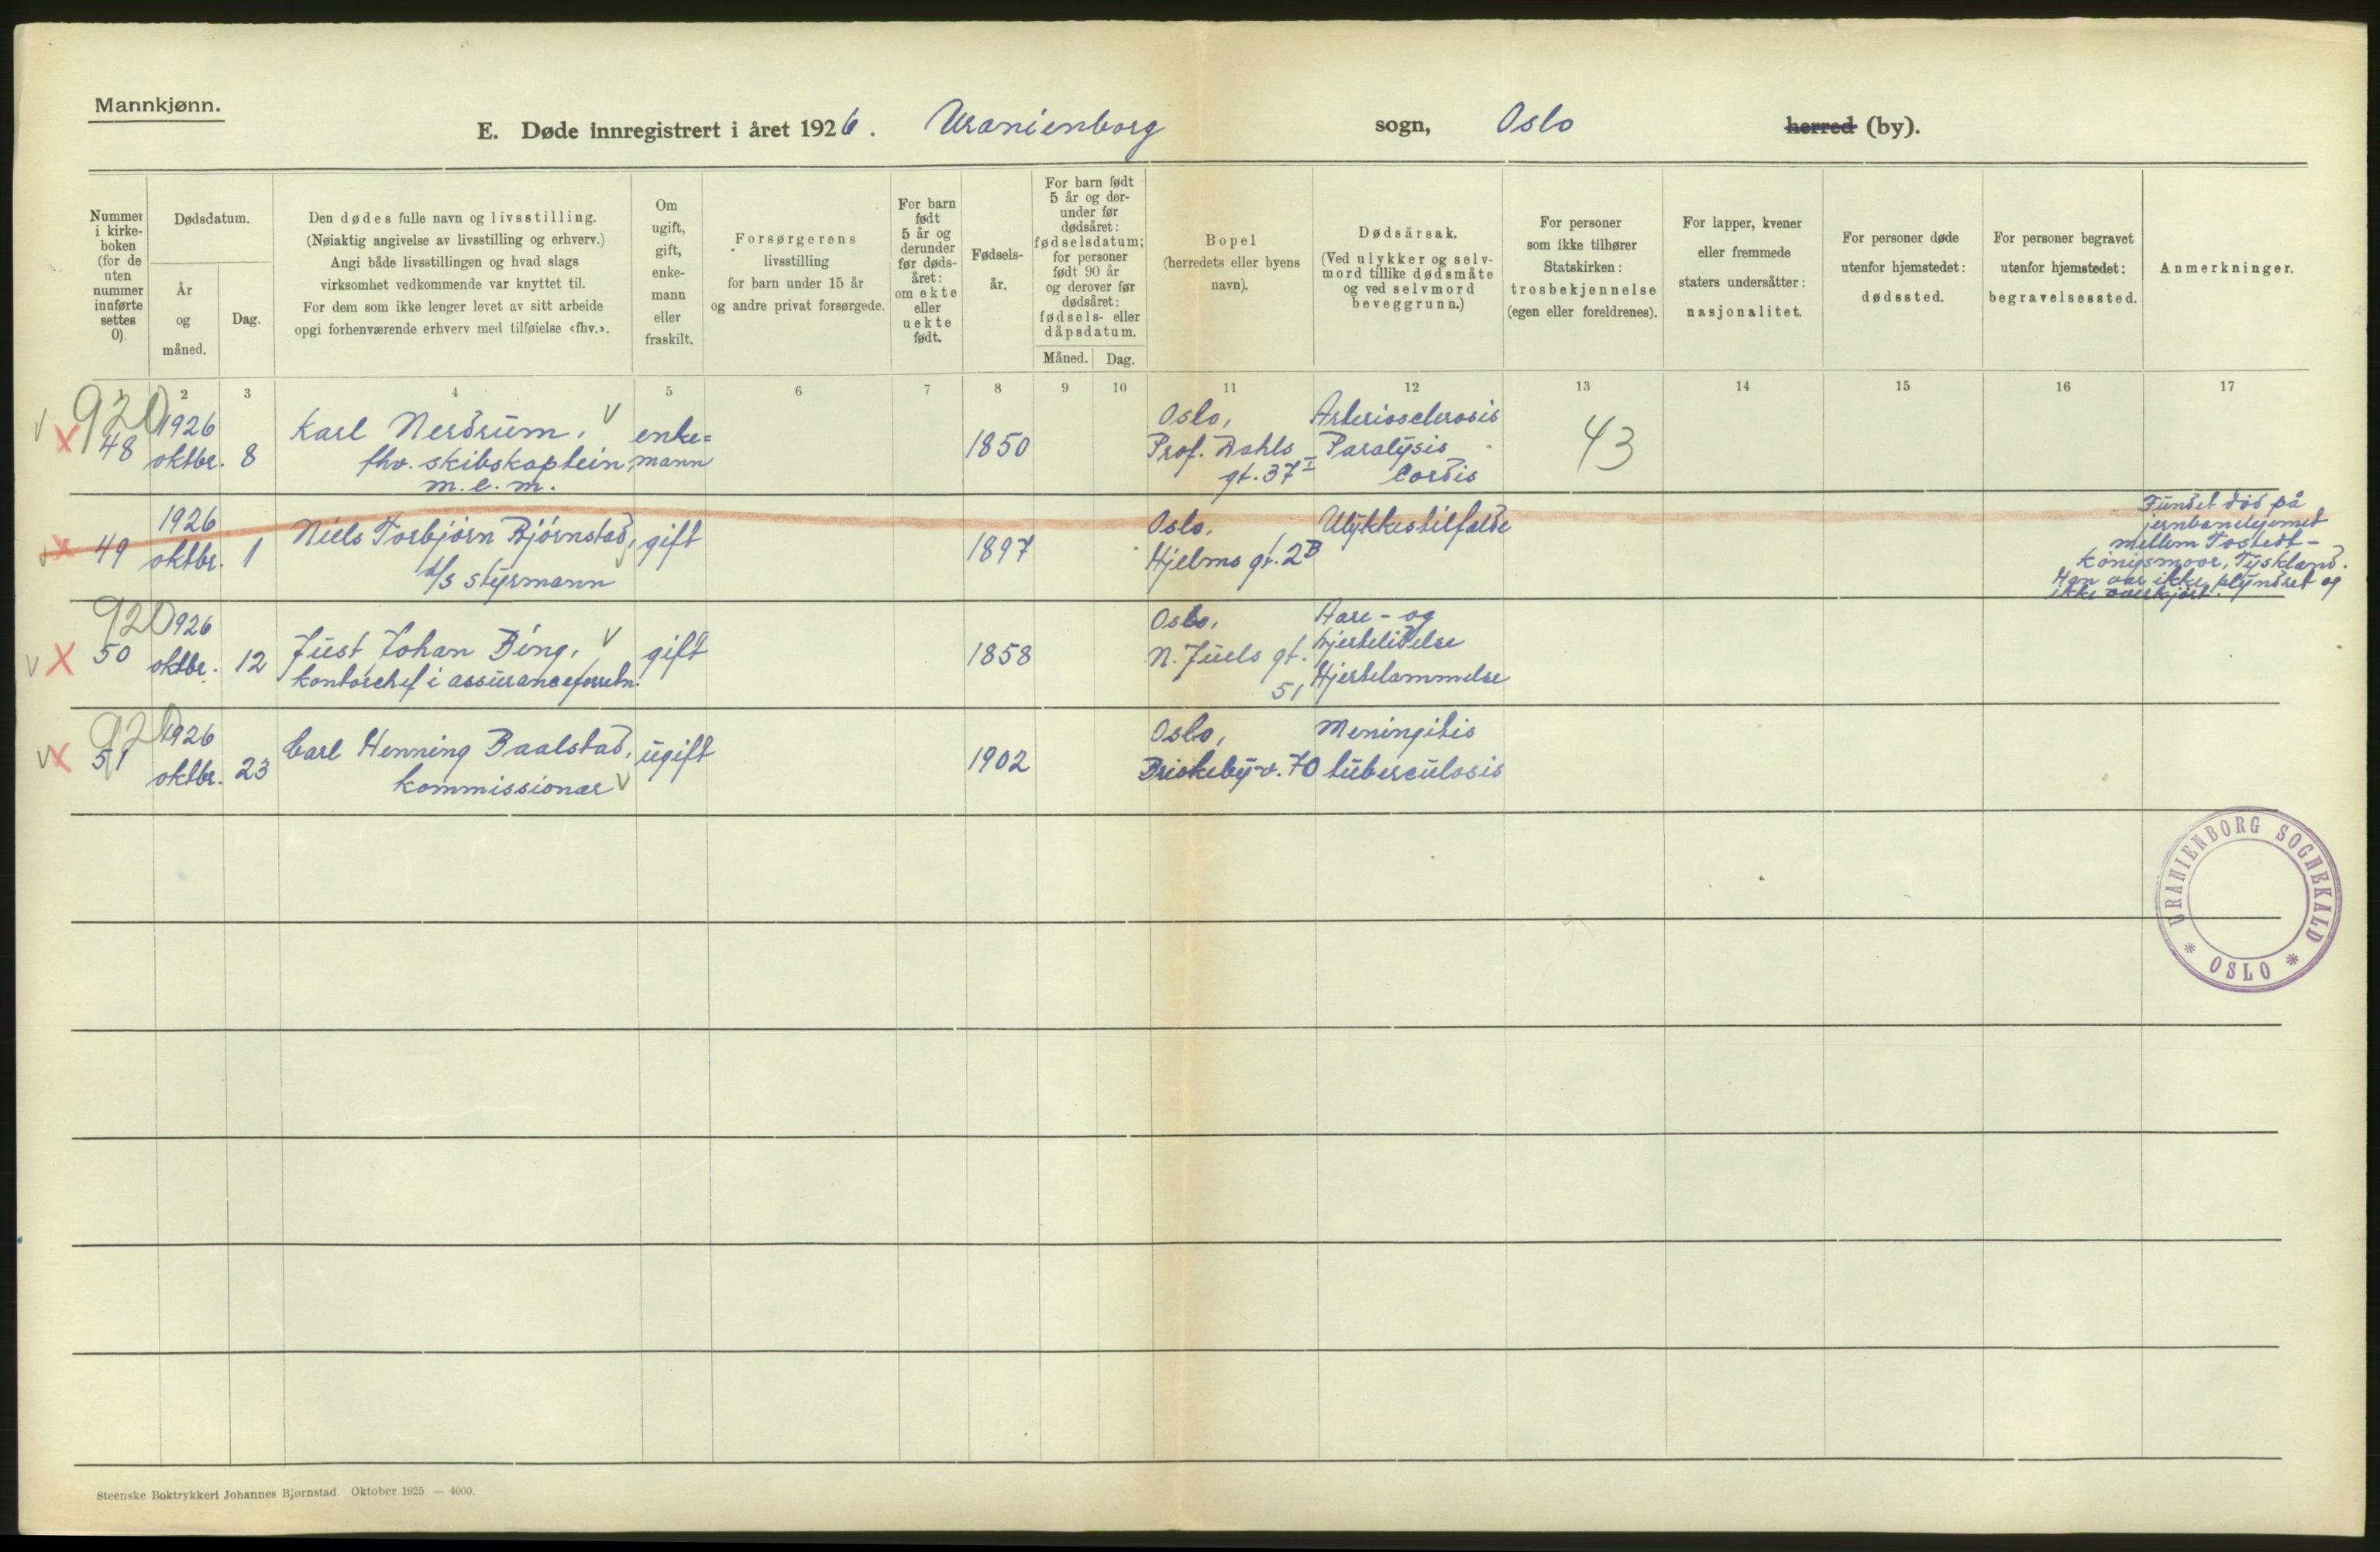 Mannkjønn.
E. Døde innregistrert i året 1926. Uranienborg sogn, Oslo herred (by).
Nummer
i kirke-
boken
(for de
uten
nummer
innførte
settes
0).
Dødsdatum.
År
og
måned.
Dag.
Den dødes fulle navn og livsstilling.
(Nøiaktig angivelse av livsstilling og erhverv.)
Angi både livsstillingen og hvad slags
virksomhet vedkommende var knyttet til.
For dem som ikke lenger levet av sitt arbeide
opgi forhenværende erhverv med tilføielse «fhv.».
Om
ugift,
gift,
enke-
mann
eller
fraskilt.
Forsørgerens
livsstilling
for barn under 15 år
og andre privat forsørgede.
For barn
født
5 år og
derunder
før døds-
året:
om ekte
eller
uekte
født.
Fødsels-
år.
For barn født
5 år og der-
under før
dødsåret:
fødselsdatum;
for personer
født 90 år
og derover før
dødsåret:
fødsels- eller
dåpsdatum.
Måned. Dag.
Bopel
(herredets eller byens
navn).
Dødsårsak.
(Ved ulykker og selv-
mord tillike dødsmåte
og ved selvmord
beveggrunn.)
For personer
som ikke tilhører
Statskirken:
trosbekjennelse
(egen eller foreldrenes).
For lapper, kvener
eller fremmede
staters undersåtter:
nasjonalitet.
For personer døde
utenfor hjemstedet:
dødssted.
For personer begravet
utenfor hjemstedet:
begravelsessted.
Anmerkninger.
1 2 3 4 5 6 7 8 9 10 11 12 13 14 15 16 17
920
48
1926
oktbr. 8
Karl Nerdrum,
fhv. skibskaptein
m.c.m.
enke=
mann
1850
Oslo,
Prof. Dahls
gt. 37 I
Arteriosclerosis
Paralysis
Cordis
43
49
1926
oktbr. 1
Niels Torbjørn Bjørnstad,
d/s styrmann
gift
1897
Oslo,
Hjelms gt. 2B
Ulykkestilfælde
Fundet død på
jernbanelegemet
mellem Tostedt-
Königsmoor, Tyskland.
Han var ikke plyndret og
ikke overkjørt.
920
50
1926
oktbr. 12
Just Johan Bing,
kontorchef i assuranceforretn.
gift
1858
Oslo,
N. Juels gt.
51
Aare- og
hjertelidelse
Hjertelammelse
920
51
1926
oktbr. 23
Carl Henning Baalstad,
kommissionær
ugift
1902
Oslo,
Briskebyv. 70
Meningitis
tuberculosis
URANIENBORG SOGNEKALD
* OSLO *
Steenske Boktrykkeri Johannes Bjørnstad. Oktober 1925. — 4000.